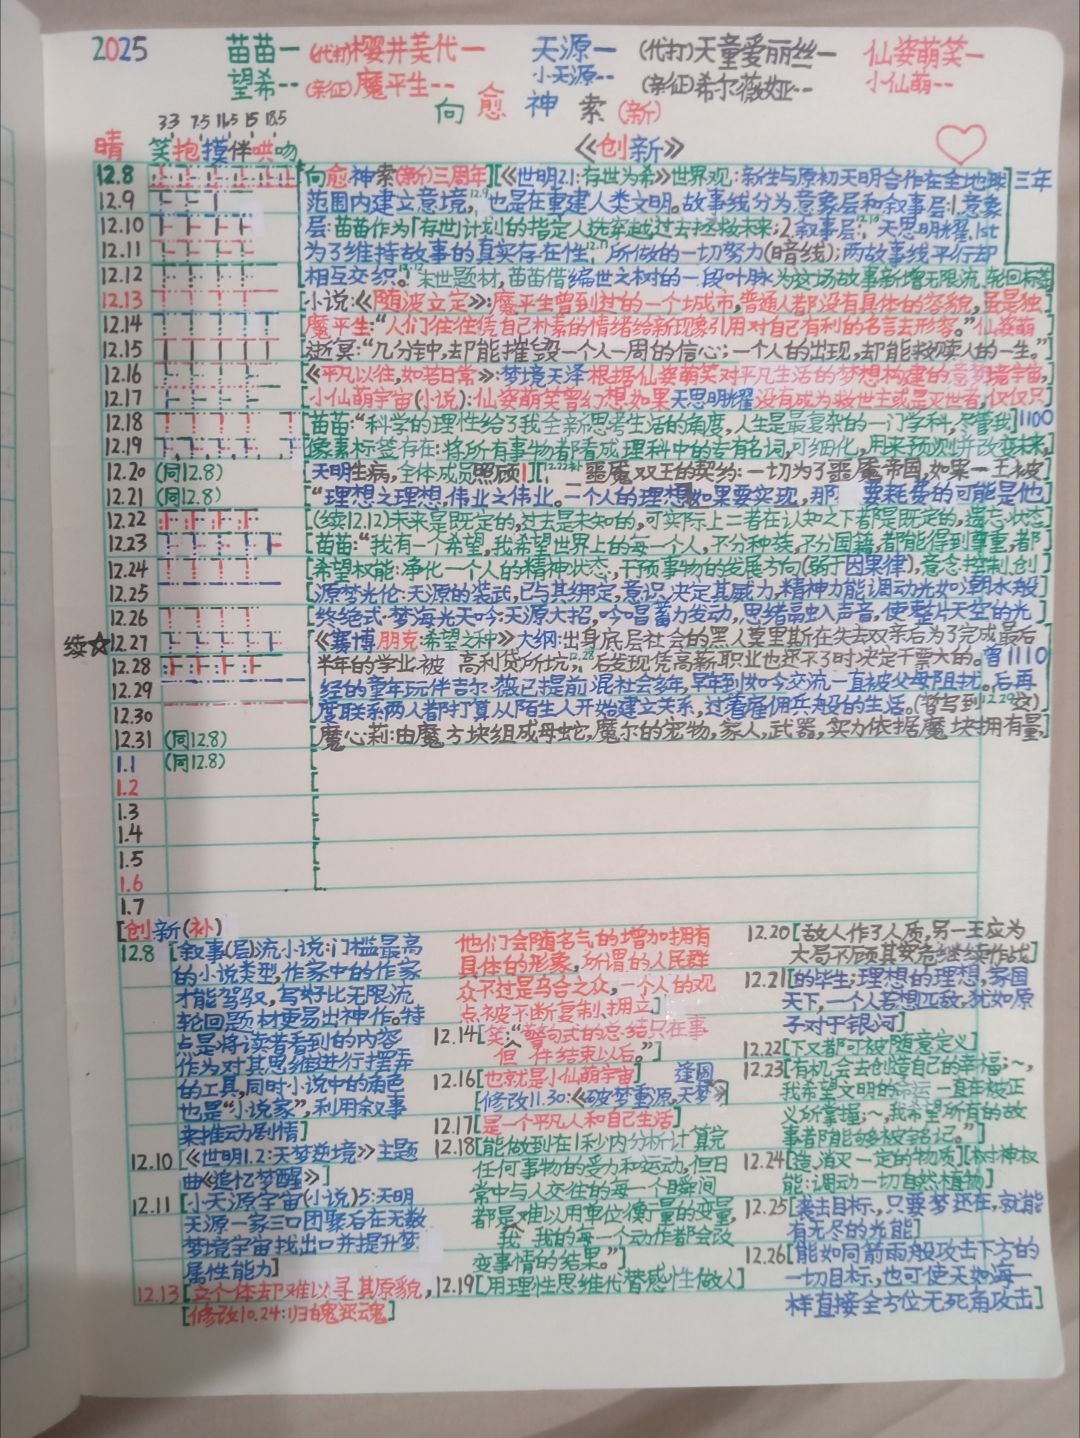 2025 苗苗— (代打)樱井美代— 天源— (代打)天童爱丽丝— 仙姿萌笑—
望希-- (亲征)魔平生-- 小天源-- (亲征)希尔薇娅-- 小仙萌--
向愈神索(新)
3.3 7.5 11.5 15 18.5
晴 笑抱摸伴哄吻 《创新》
12.8 [向愈神索(新)三周年][《世明2.1:存世为希》世界观:新生与原初天明合作在全地球 三年
12.9 范围内建立意境,12.9也是在重建人类文明。故事线分为意象层和叙事层:1.意象
12.10 层:苗苗作为「存世」计划的指定人选穿越过去拯救未来;2.叙事层:12.10天思明耀.1st
12.11 为了维持故事的真实存在性,12.11所做的一切努力(暗线);两故事线平行却
12.12 相互交织。12.12末世题材,苗苗借编世之树的一段叶脉为这场故事新增无限流,轮回标签
12.13 小说:《随波立定》:魔平生曾到过的一个城市,普通人都没有具体的容貌,虽是独
12.14 魔平生:“人们往往凭自己朴素的情绪给新现象引用对自己有利的名言去形容。”仙姿萌
12.15 逝冥:“几分钟,却能摧毁一个人一周的信心;一个人的出现,却能救赎人的一生。”]
12.16 《平凡以往,如若日常》:梦境天泽根据仙姿萌笑对平凡生活的梦想构建的意境宇宙,
12.17 [小仙萌宇宙(小说):仙姿萌笑曾幻想如果天思明耀没有成为救世主或是灭世者,仅仅只
12.18 [苗苗:“科学的理性给了我全新思考生活的角度,人生是最复杂的一门学科,尽管我 1100
12.19 像素标签存在:将所有事物都看成理科中的专有名词,可细化,用来预测并改变未来,
12.20 (同12.8) [天明生病,全体成员照顾1][噩魔双王的契约:一切为了噩魔帝国,如果一王被
12.21 (同12.8) [“理想之理想,伟业之伟业。一个人的理想如果要实现,那 要耗费的可能是他
12.22 [(续12.12)未来是既定的,过去是未知的,可实际上二者在认知之下都是既定的,遗忘状态
12.23 [苗苗:“我有一个希望,我希望世界上的每一个人,不分种族,不分国籍,都能得到尊重,都
12.24 [希望权能:净化一个人的精神状态,干预事物的发展方向(弱于因果律),意念控制,创
12.25 源梦光伦:天源的装武,已与其绑定,意识决定其威力,精神力能调动光如潮水般
12.26 [终绝式·梦海光天·吟:天源大招,吟唱蓄力发动,思绪融入声音,使整片天空的光
续☆12.27 《赛博朋克:希望之种》大纲:出身底层社会的黑人莫里斯在失去双亲后为了完成最后
12.28 半年的学业被 高利贷所坑,12.28后发现凭高薪职业也还不了时决定干票大的。曾 1110
12.29 经的童年玩伴吉尔·薇已提前混社会多年,早年到如今交流一直被父母阻扰。后再
12.30 度联系两人都打算从陌生人开始建立关系,过着雇佣兵般的生活。(暂写到12.29这)
12.31 (同12.8) [魔心莉:由魔方块组成母蛇,魔尔的宠物,家人,武器,实力依据魔块拥有量,
1.1 (同12.8)
1.2
1.3
1.4
1.5
1.6
1.7
[创新(补)
12.8 [叙事(层)流小说:门槛最高
的小说类型,作家中的作家
才能驾驭,写好比无限流
轮回题材更易出神作。特
点是将读者看到的内容
作为对其思维进行摆弄
的工具,同时小说中的角色
也是“小说家”,利用叙事
来推动剧情]
12.10 [《世明1.2:天梦逆境》主题
曲《追忆梦醒》]
12.11 [小天源宇宙(小说)5:天明
天源一家三口团聚后在无数
梦境宇宙找出口并提升梦
属性能力]
12.13 [立个体却难以寻其原貌,
他们会随名气的增加拥有
具体的形象,所谓的人民群
众不过是乌合之众,一个人的观
点被不断复制、拥立]
[修改10.24:归魄逆魂]
12.14 [笑:“警句式的总结只在事
但 件结束以后。”]
12.16 [也就是小仙萌宇宙] 逢圆
[修改11.30:《破梦重源,天梦》]
12.17 [是一个平凡人和自己生活]
12.18 [能做到在1秒内分析计算完
任何事物的受力和运动,但日
常中与人交往的每一个瞬间
都是难以用单位衡量的变量,
我 我的每一个动作都会改
变事情的结果。”]
12.19 [用理性思维代替感性做人]
12.20 [敌人作了人质,另一王应为
大局不顾其安危继续作战]
12.21 [的毕生;理想的理想,家国
天下,一个人若想匹敌,犹如原
子对于银河]
12.22 [下又都可被随意定义]
12.23 [有机会去创造自己的幸福;~,
我希望文明的命运一直在被正
义所掌握;~,我希望所有的故
事都能够被铭记。”]
12.24 [造、消灭一定的物质][树神权
能:调动一切自然植物]
12.25 [袭击目标,只要梦还在,就能
有无尽的光能]
12.26 [能如同箭雨般攻击下方的
一切目标,也可使天如海一
样直接全方位无死角攻击]